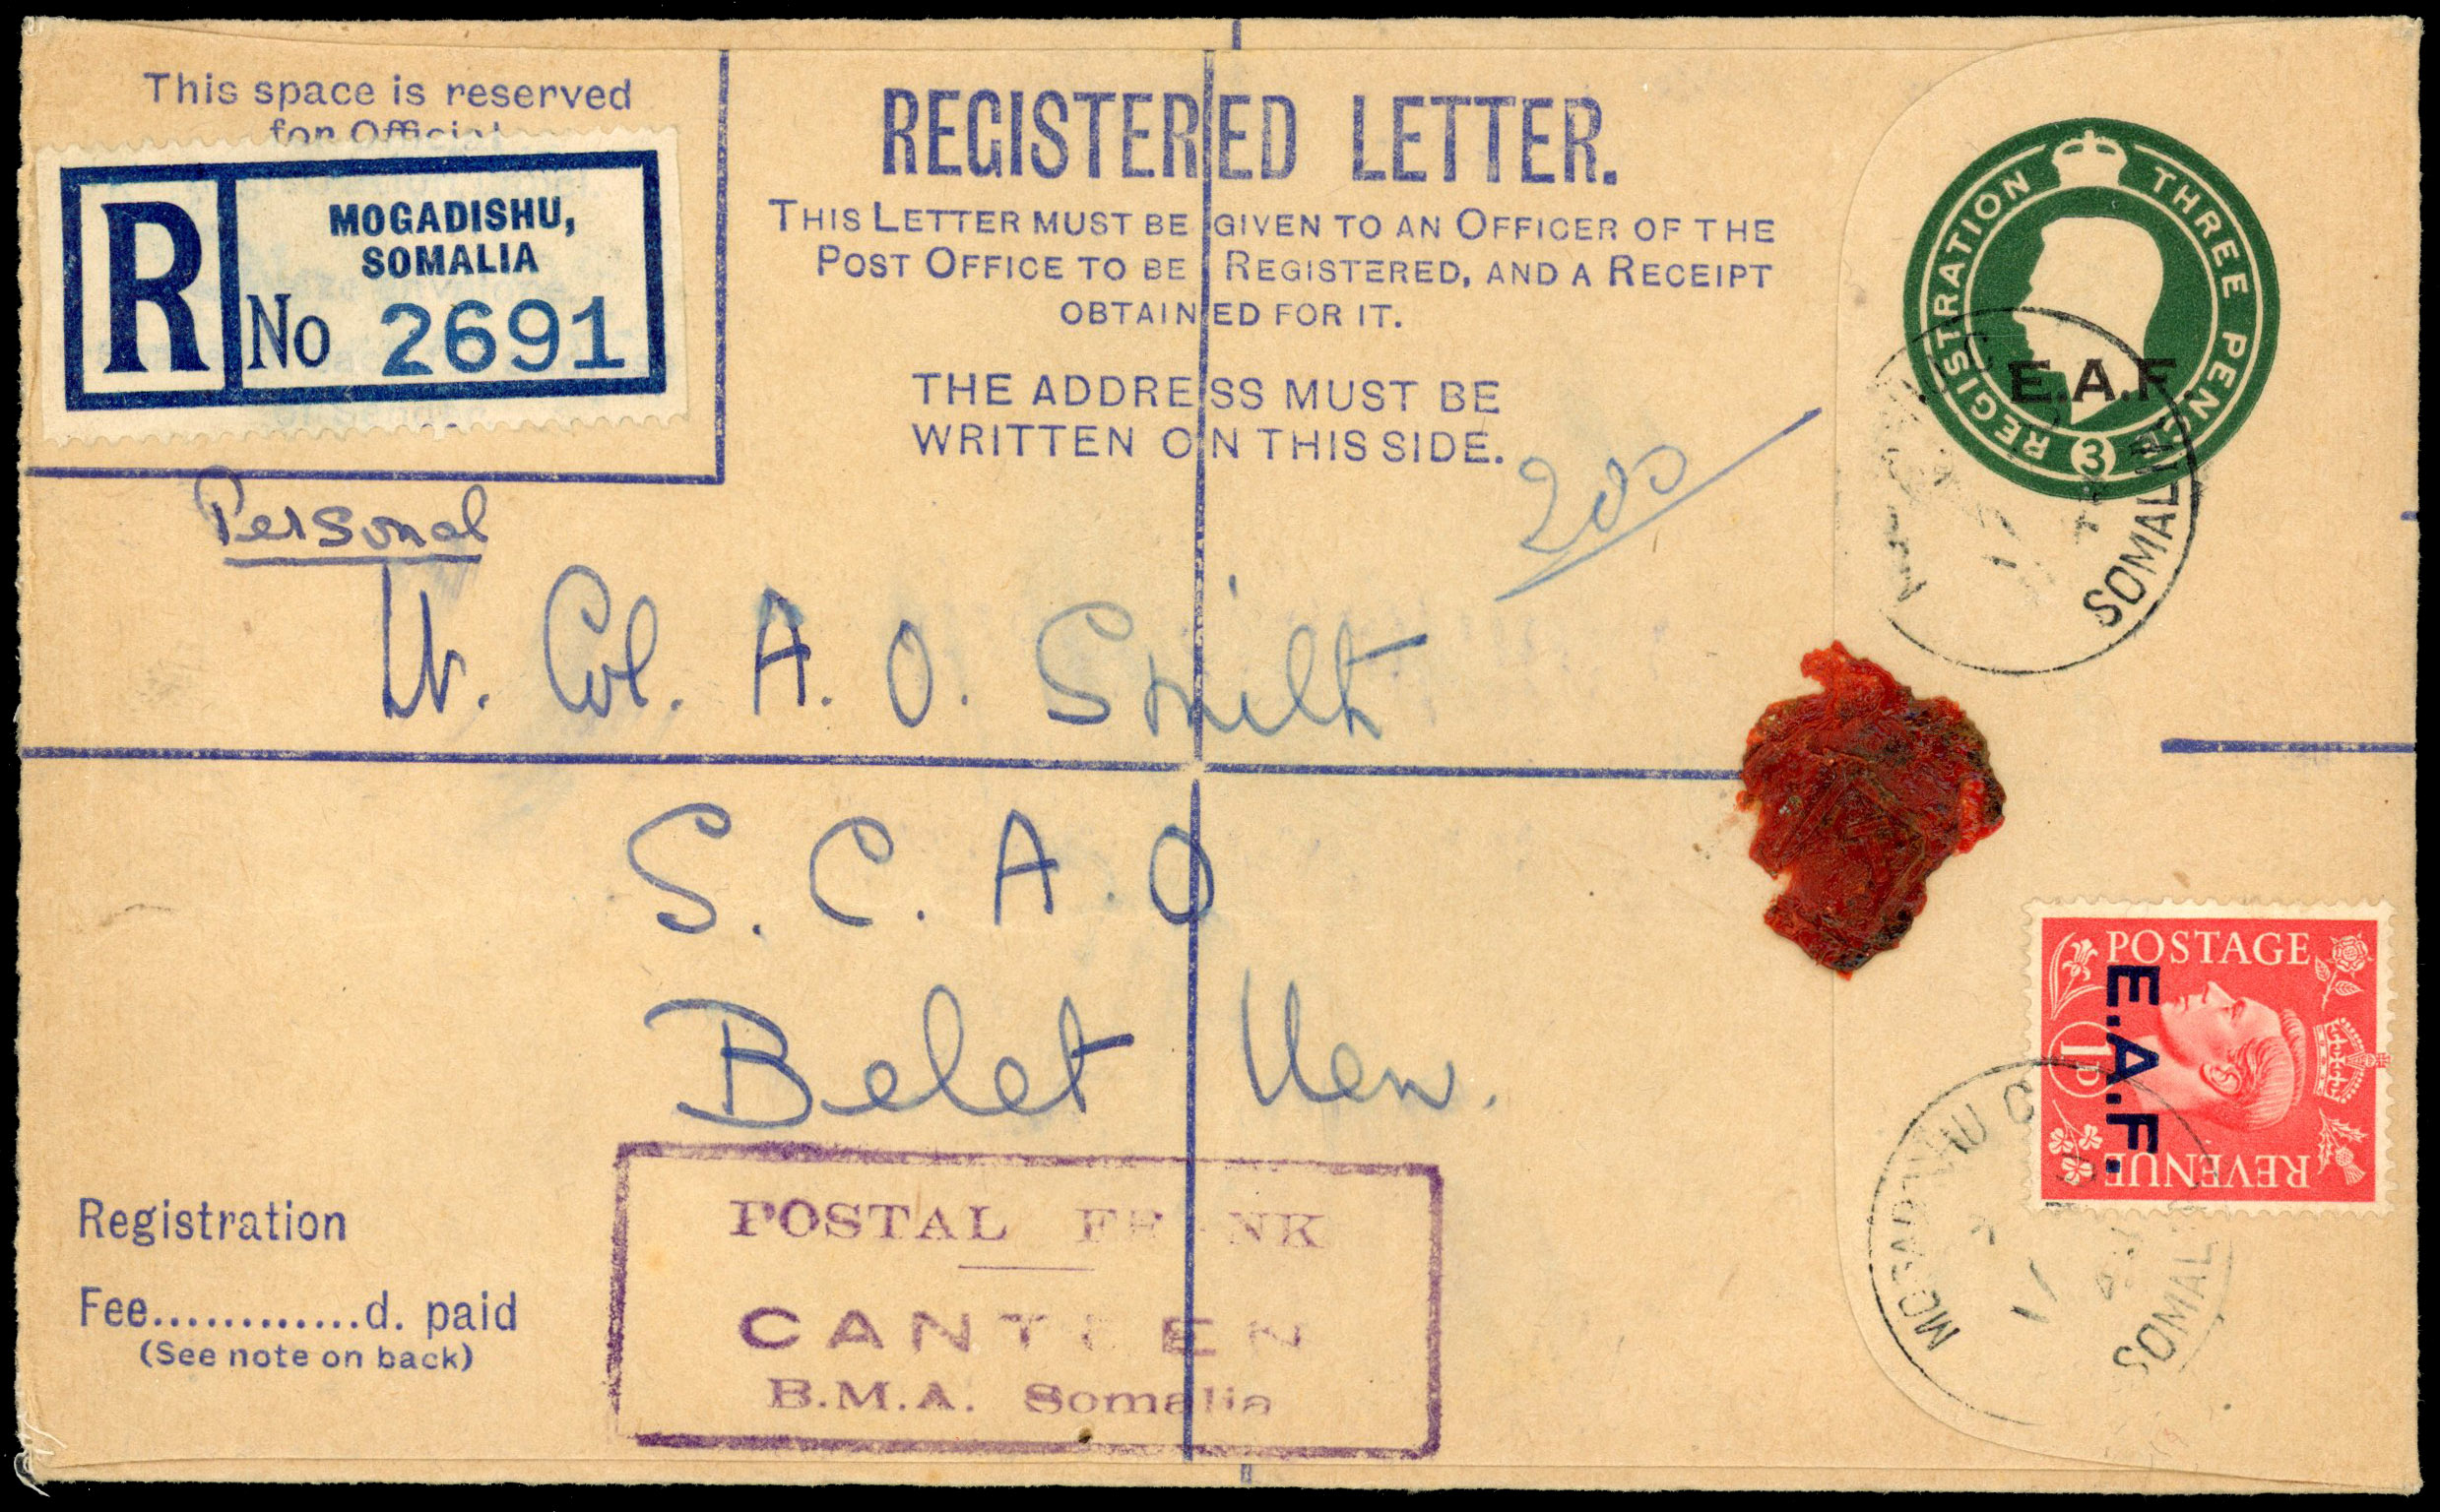 This space is reserved
for Official
R
MOGADISHU,
SOMALIA
No 2691
REGISTERED LETTER.
THIS LETTER MUST BE GIVEN TO AN OFFICER OF THE
POST OFFICE TO BE REGISTERED, AND A RECEIPT
OBTAINED FOR IT.
THE ADDRESS MUST BE
WRITTEN ON THIS SIDE.
REGISTRATION THREE PENCE
3
E.A.F.
SOMALIA
200
Personal
Lt. Col. A. O. Smith
S. C. A. O
Belet Uen.
POSTAGE
E.A.F.
1D
REVENUE
MOGADISHU
SOMALIA
POSTAL FRANK
CANTEEN
B.M.A. Somalia
Registration
Fee.............d. paid
(See note on back)